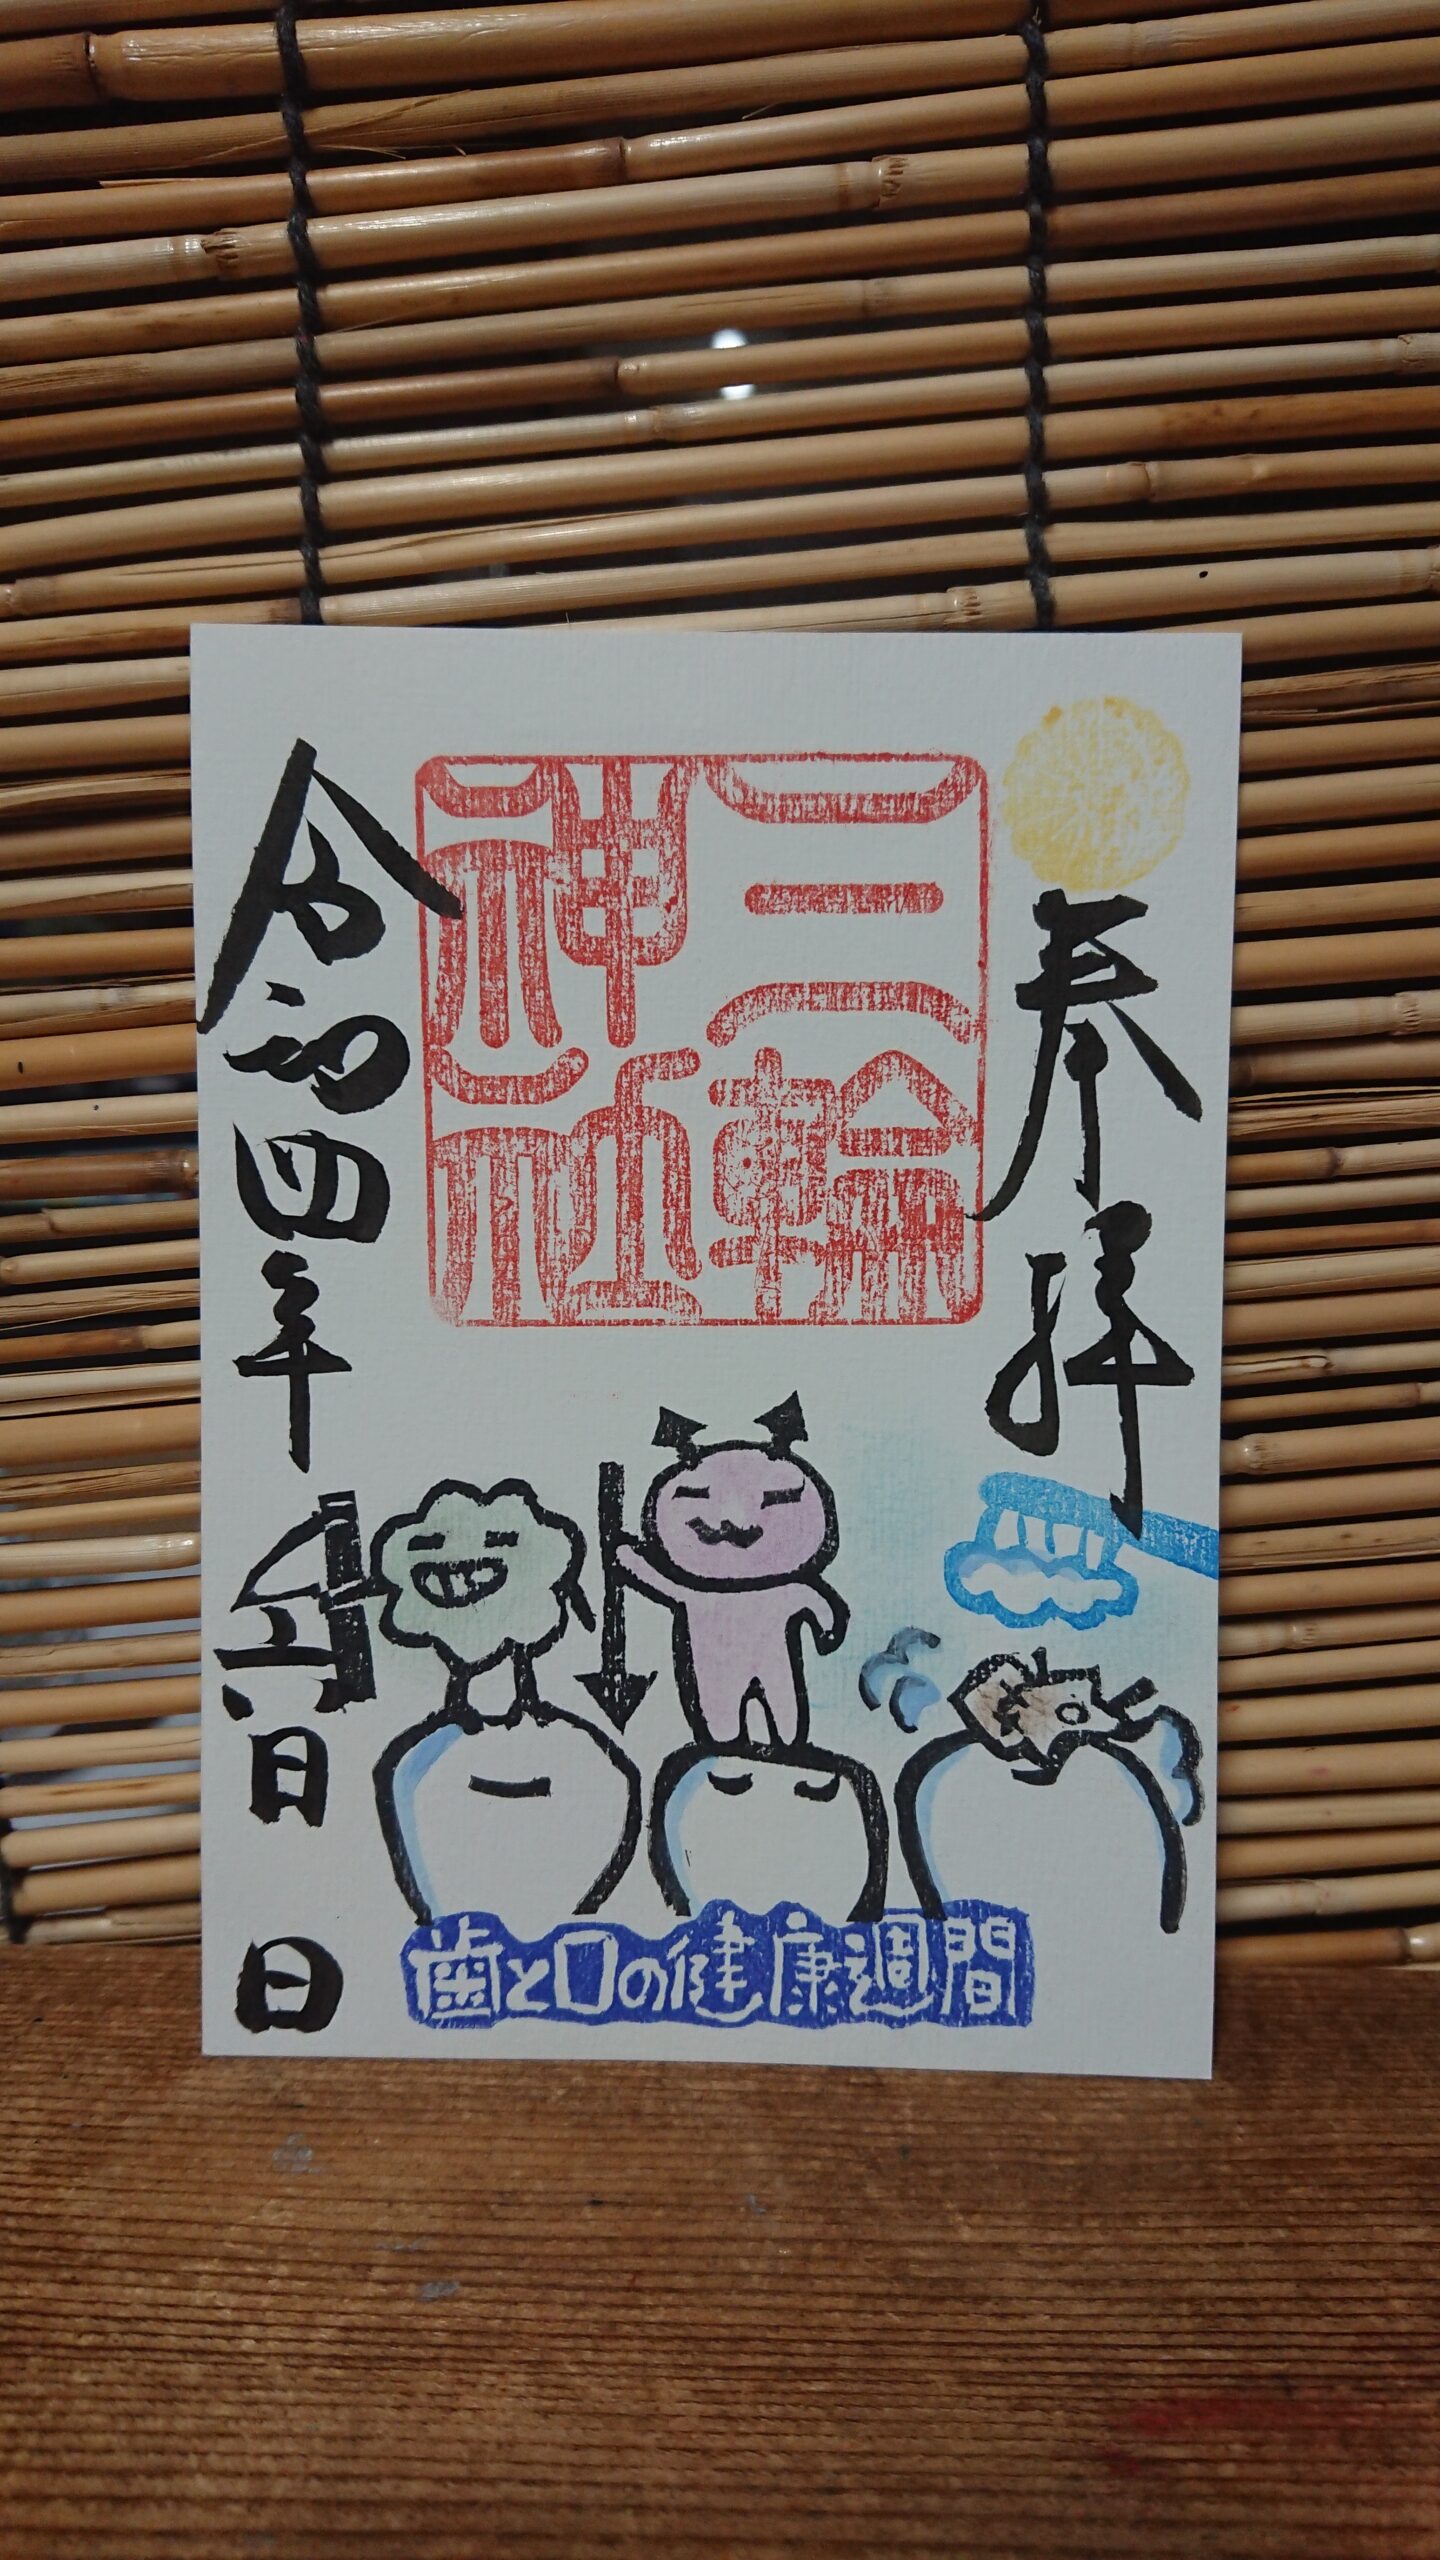 奉拝
三輪
神社
令和四年
六日
日
歯と口の健康週間